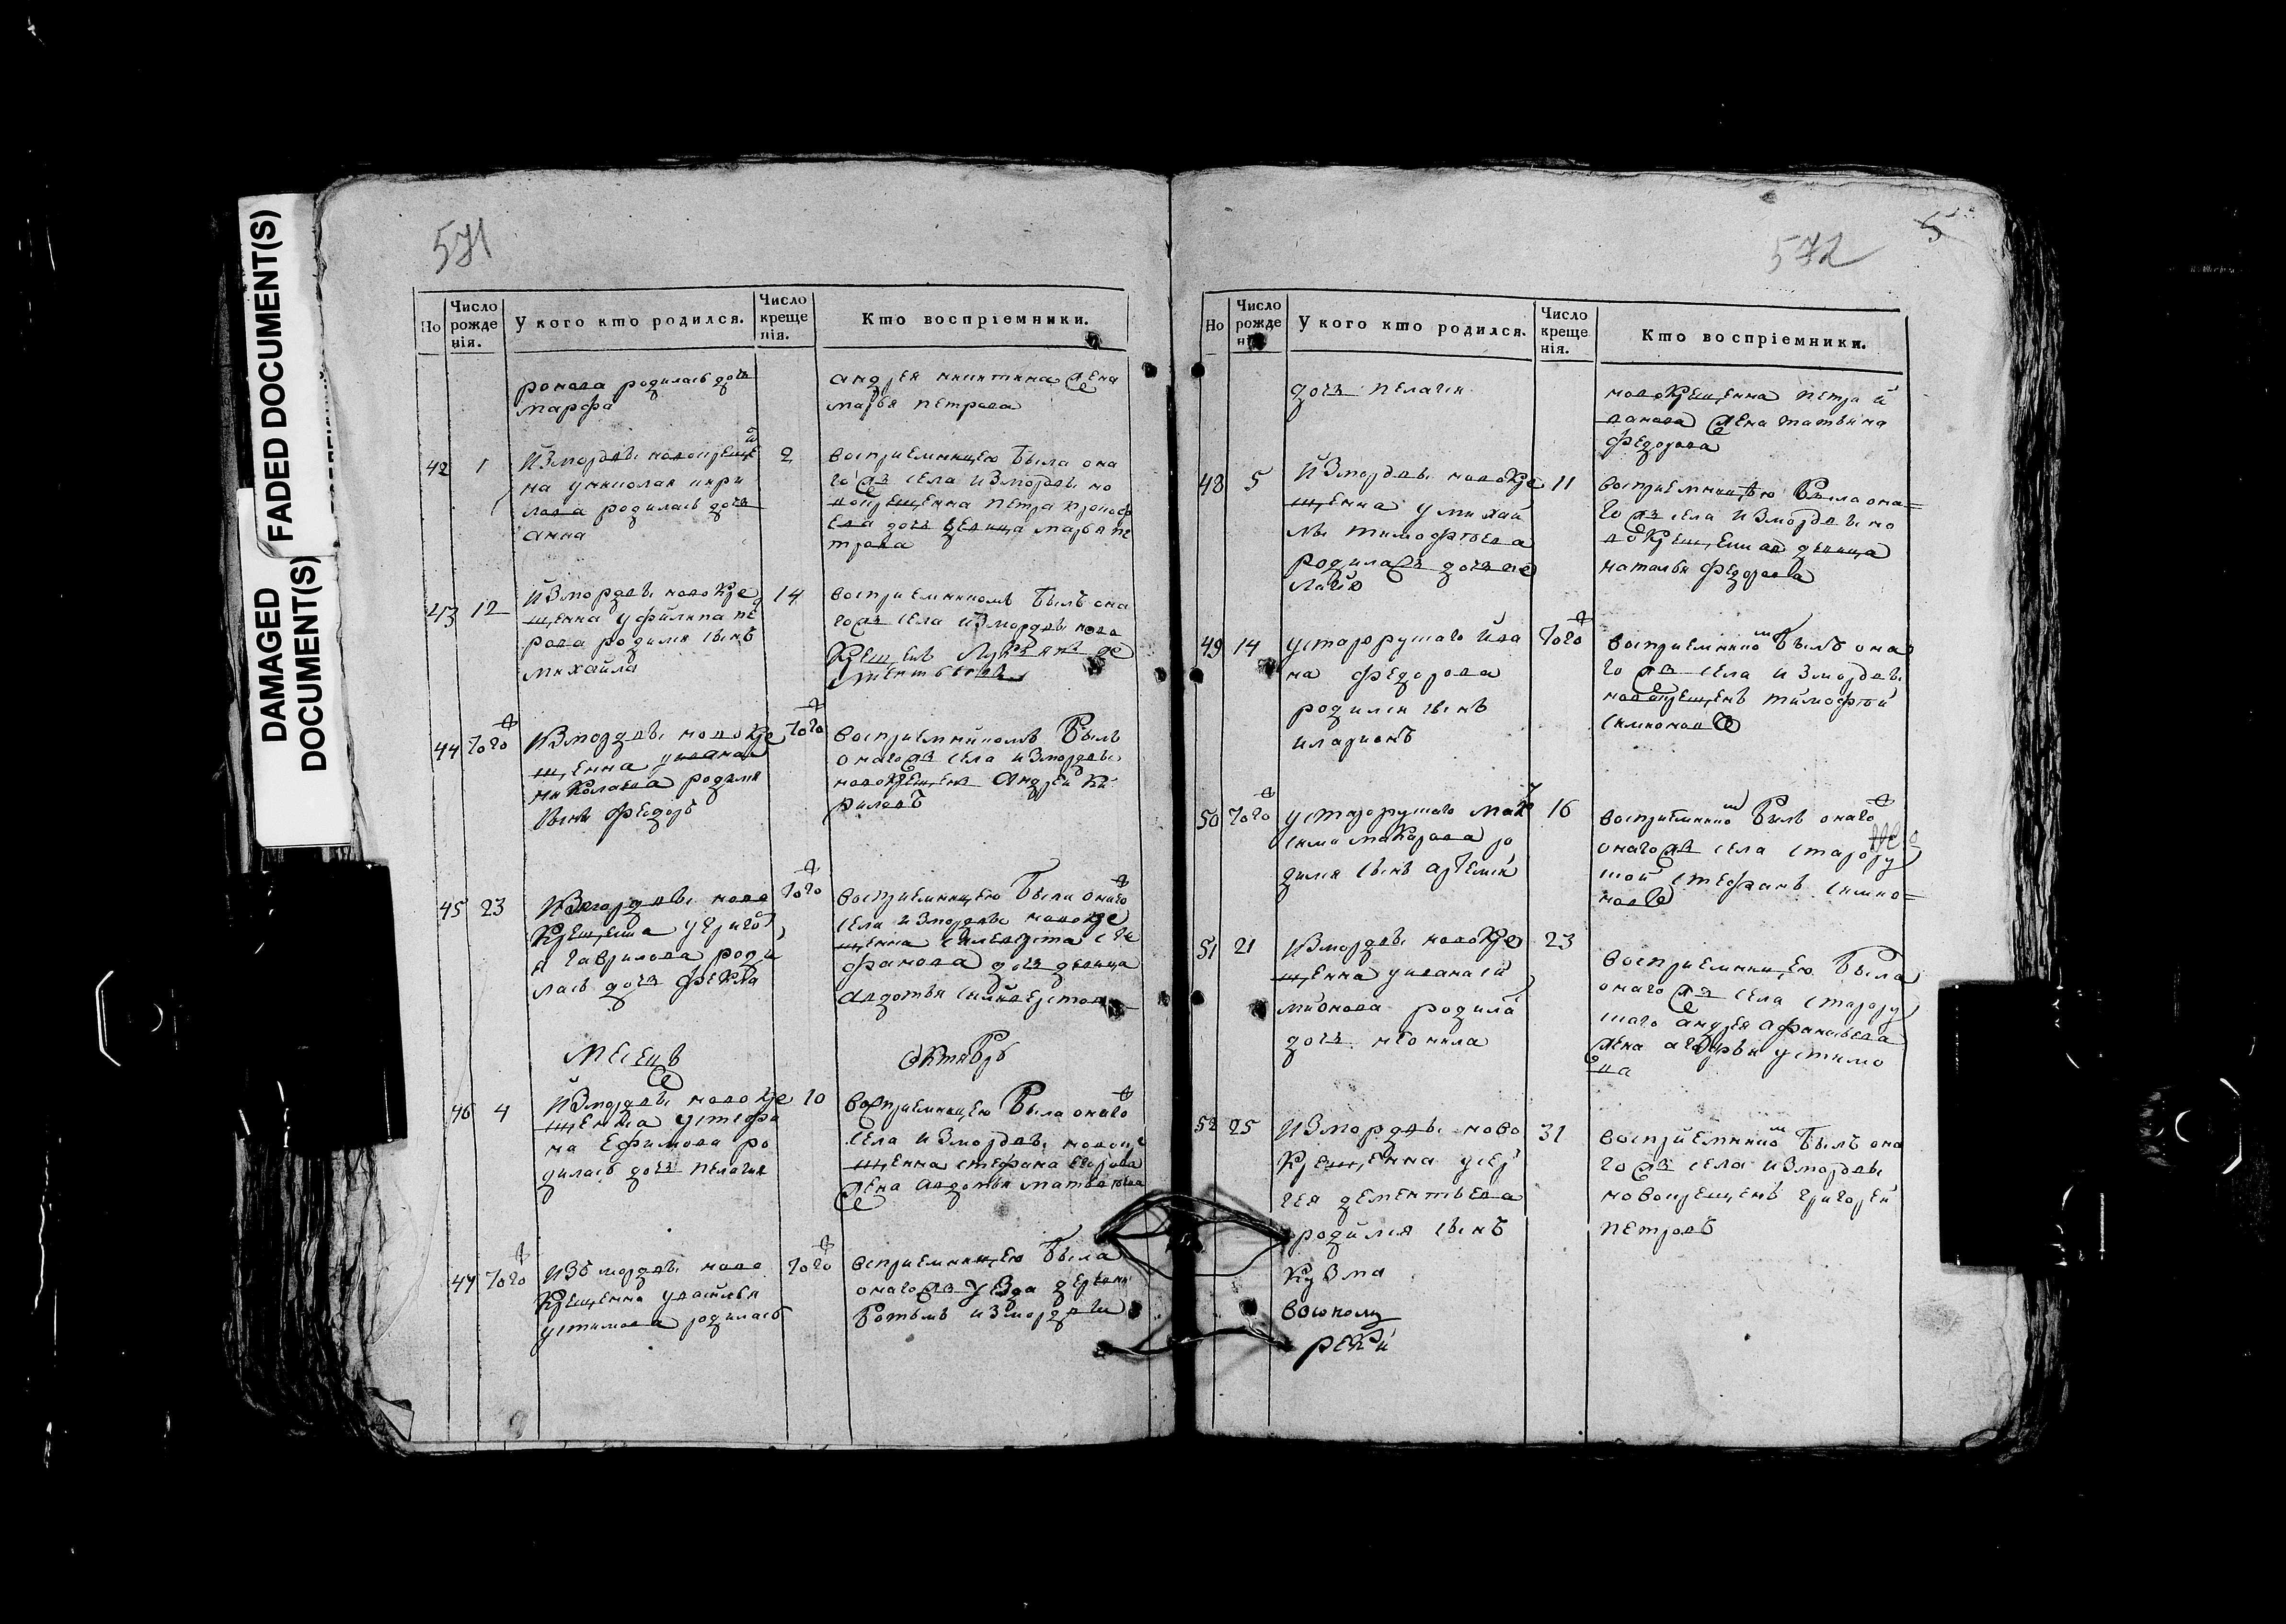 DAMAGED
DOCUMENT(S)
FADED DOCUMENT(S)
571
Но
Число рожденія.
У кого кто родился.
Число крещенія.
Кто воспріемники.
ронова родилась дочь
марфа
андрея никитина жена
марья петрова
42 1
Измордвы новокреще
на униколая кири
лова родилась дочь
анна
2
восприемницею была она
гожъ села измордвы но
вокрещенна петра
дочь девица марья пе
трова
43 12
Измордвы новокре
щенна уфилипа пе
рова родился сынъ
михайла
14
восприемникомъ былъ она
гожъ села измордвы ново
крещенъ
44 Того
Измордвы новокре
щенна уивана
николаева родился
сынъ федоръ
Того
восприемникомъ былъ
оногожъ села измордвы
новокрещенъ Андрей Ки
риловъ
45 23
Измордвы ново
крещенна
гаврилова роди
лась дочь фекла
Того
восприемницею была онаго
села измордвы новокре
щенна силвестра сте
фанова дочь девица
авдотья силивестрова
месецъ октябрь
46 4
Измордвы новокре
щенна устефа
на Ефимова ро
дилась дочь пелагия
10
восприемницею была онаго
села измордвы новокре
щенна стефана егорова
жена авдотья матвеева
47 Того
Изъ мордвы ново
крещенна увасилья
устимова родилась
Того
восприемницею была
онагожъ уезда деревни
измордвы
572
5
Но
Число рожденія.
У кого кто родился.
Число крещенія.
Кто воспріемники.
дочь пелагия
новокрещенна петра и
ванова жена татьяна
федорова
48 5
Измордвы новокре
щенна умихай
лы тимофеева
родилась дочь пе
лагия
11
восприемницею была она=
гожъ села измордвы но
вокрещеннаго девица
наталья федорова
49 14
устарорускаго ива
на федорова
родился сынъ
иларионъ
Того
восприемнико былъ она
гожъ села измордвы
новокрещенъ тимофей
симионовъ
50 Того
устарорускаго мак
сима макарова ро
дился сынъ артемий
16
восприемнико былъ онаго
онагожъ села старору
ской стефанъ симио=
новъ
51 21
Измордвы новокре
щенна уивана си
мионова родила
дочь неонила
23
восприемницею была
онагожъ села старору
скаго андрея афанасьева
жена агафья устимо
ва
52 25
Измордвы ново
крещенна усер
гея дементьева
родился сынъ
кузма
31
восприемнико былъ она
гожъ села измордвы
новокрещенъ григорей
петровъ